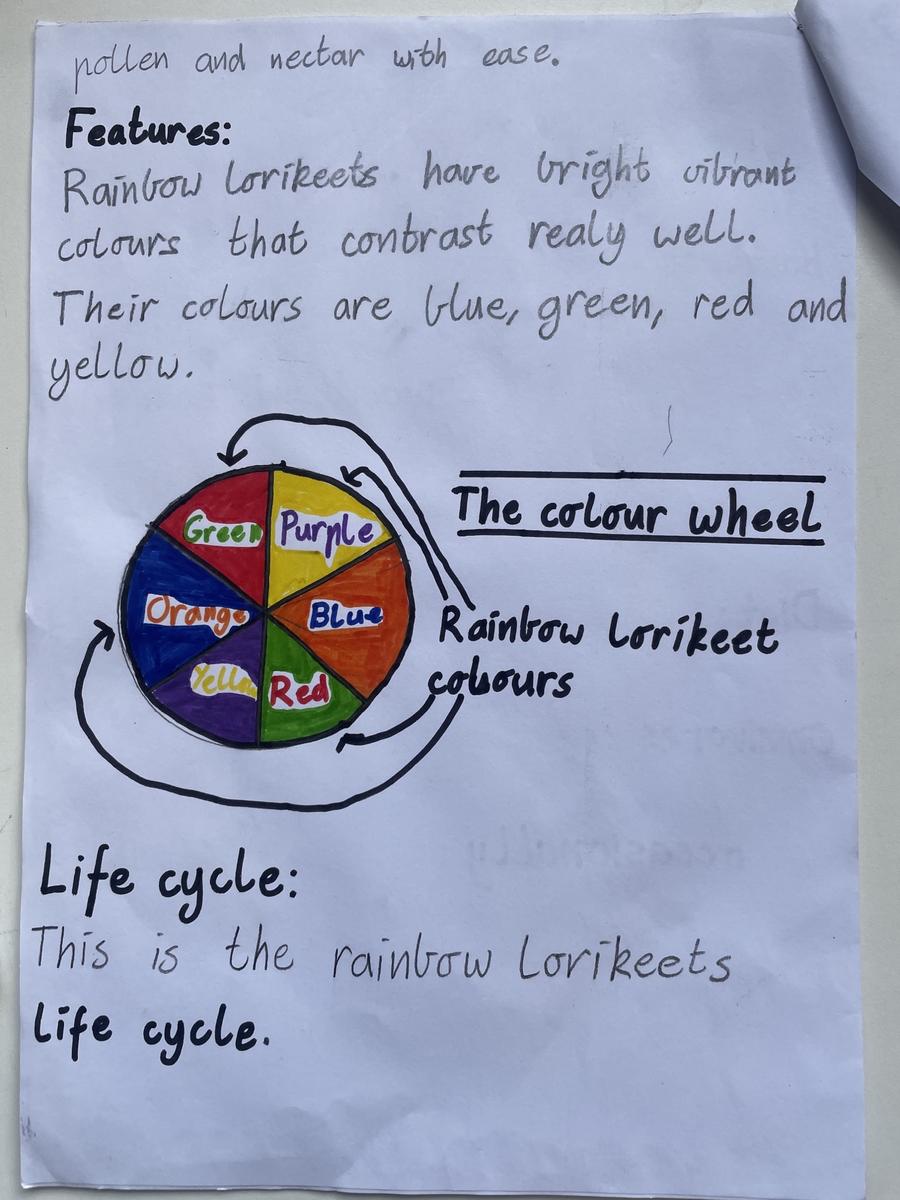 pollen and nectar with ease.
Features:
Rainbow Lorikeets have bright vibrant
colours that contrast realy well.
Their colours are blue, green, red and
yellow.
The colour wheel
Green
Purple
Orange
Blue
Yellow
Red
Rainbow Lorikeet
colours
Life cycle:
This is the rainbow Lorikeets
life cycle.